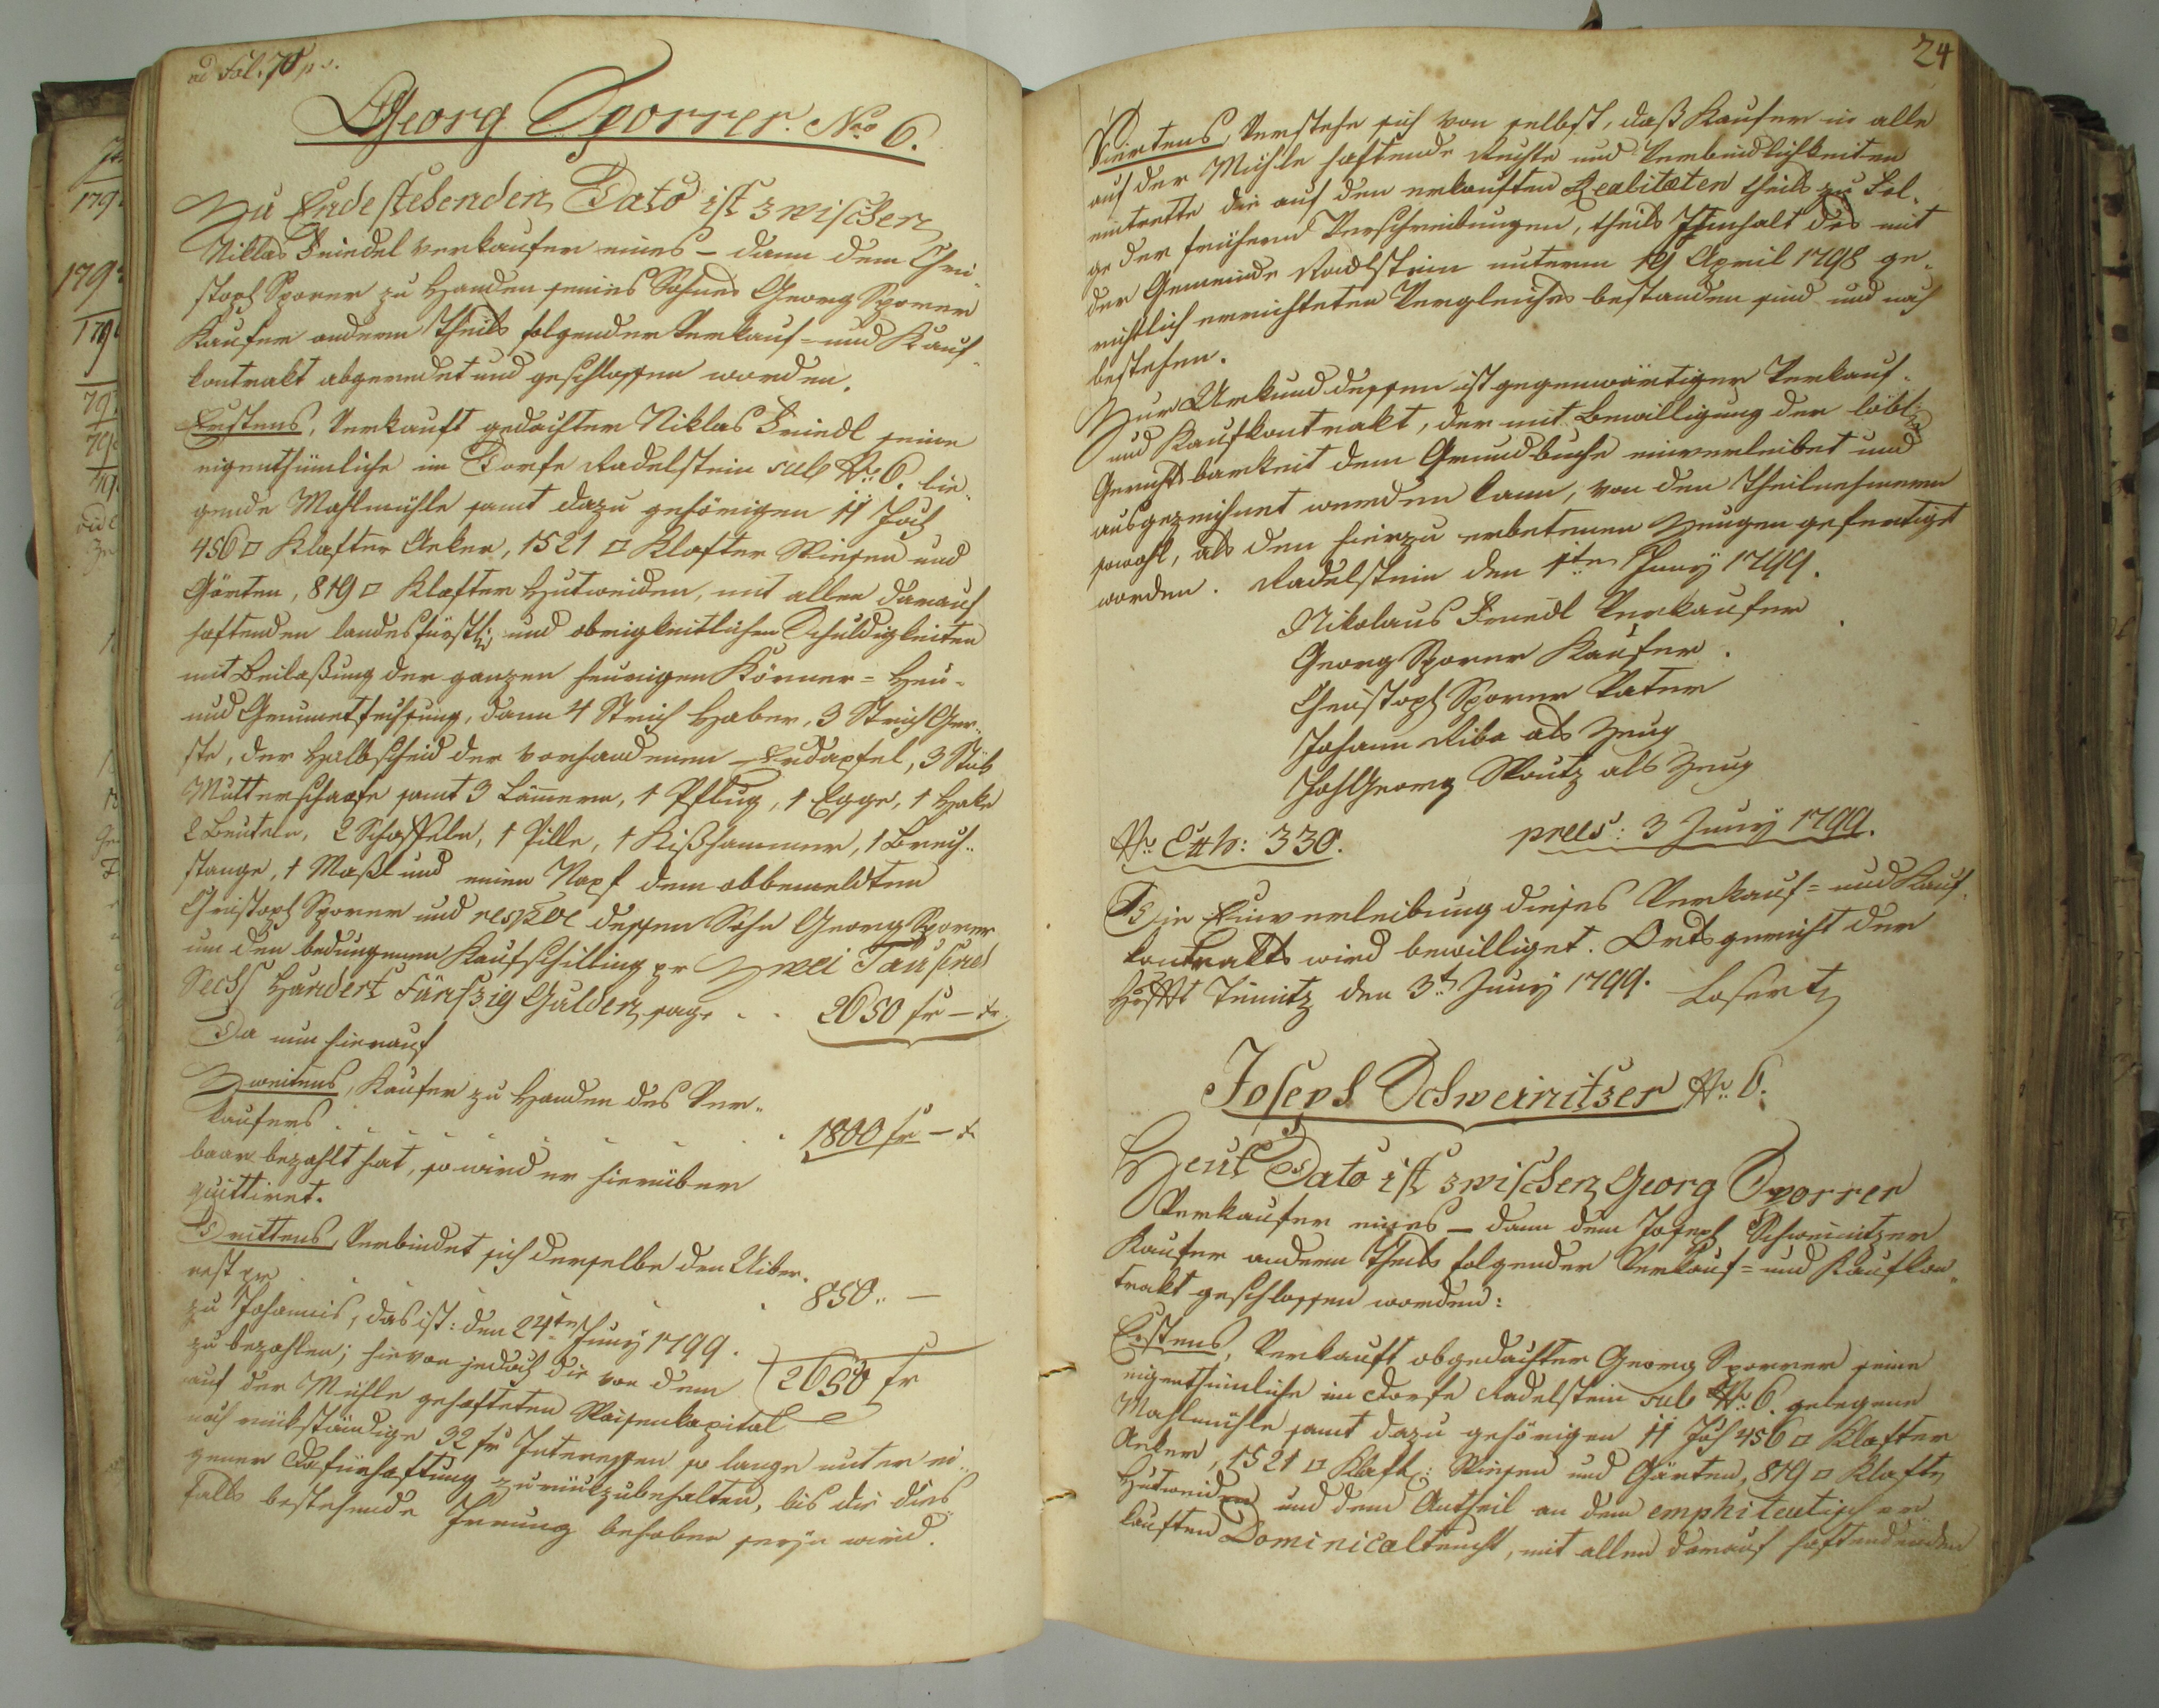 ad Fol. 70 p. v.
Georg Sporrer. Nro 6.
Zu Endestehenden Dato ist zwischen
Niklas Friedel Verkaufer eines – dann dem Chri
stoph Sporer zu Handen seines Sohnes Georg Sporer
Kaufer andern Theils folgender Verkauf= und Kauf-
kontrakt abgeredet und geschlossen worden.
Erstens, Verkauft gedachter Niklas Friedl seine
eigenthümliche im Dorfe Radelstein sub Nr. 6. lie-
gende Mahlmühle samt dazu gehörigen 11 Joch
456 □ Klafter Aeker, 1521 □ Klafter Wiesen und
Gärten, 819 □ Klafter Hutweiden, mit allen darauf
haftenden landesfürstl: und obrigkeitlichen Schuldigkeiten
mit Beilaßung der ganzen heurigen Körner= Heu-
und Grumetfechsung, dann 4 Strich Haber, 3 Strich Ger-
ste, der Halbscheid der vorhandenen Erdapfel, 3 Stük
Mutterschaafe samt 3 Lämern, 1 Pflug, 1 Egge, 1 Hake
2 Beuteln, 2 Schaffeln, 1 Pille, 1 Kißhammer, 1 Brech-
stange, 1 Maßl und einen Napf dem obbemeldten
Christoph Sporer und respve dessen Sohn Georg Sporer
um den bedungenen Kaufschilling pr Zwei Tausend
Sechs Hundert Fünfzig Gulden, sage . . 2650 fr – xr.
Da nun hierauf
Zweitens, Kaufer zu Handen des Ver-
kaufers . . . . . . . 1800 fr – x
baar bezahlt hat, so wird er hierüber
quittiret.
Drittens, Verbindet sich derselbe den Uiber-
rest pr . . . . . 850 .. –
zu Johannis, das ist: den 24ten Juny 1799.
zu bezahlen; hievon jedoch die von dem 2650 fr
auf der Mühle gehafteten Waisenkapital
noch rückständige 32 fr Interessen so lange unter ei-
gener Dafürhaftung zurückzubehalten, bis die dies-
falls bestehende Irrung behoben seyn wird.
24
Viertens, Verstehe sich von selbst, daß Kaufer in alle
auf der Mühle haftende Rechte und Verbindlichkeiten
eintrette die auf den erkauften Realitæten theils zu Fol-
ge der frühern Verschreibungen, theils Innhalt des mit
der Gemeinde Radlstein unterm 19 April 1798 ge-
richtlich errichteten Vergleiches bestanden sind und noch
bestehen.
Zur Urkund dessen ist gegenwärtiger Verkauf-
und Kaufkontrakt, der mit Bewilligung der löbl:
Gerichtsbarkeit dem Grundbuche einverleibet und
ausgezeichnet werden kann, von den Theilnehmern
sowohl, als den hierzu erbetenen Zeugen gefertigt
worden. Radelstein den 1ten Juny 1799.
Nikolaus Friedl Verkaufer
Georg Sporer Kaufer.
Christoph Sporer Vater
Johann Riba als Zeug
Joh Georg Wautz als Zeug
Nr. Exh: 330. præs: 3 Juny 1799.
Die Einverleibung dieses Verkauf= und Kauf-
kontrakts wird bewilliget. Ortsgericht der
Hschft Türmitz den 3t Juny 1799. Losert
Joseph Schweinitzer Nr. 6.
Heut Dato ist zwischen Georg Sporrer
Verkaufer eines – dann dem Joseph Schweinitzer
Kaufer andern Theils folgender Verkauf= und Kaufkon-
trakt geschlossen worden:
Erstens, Verkauft obgedachter Georg Sporrer seine
eigenthümliche im Dorfe Radelstein sub Nr. 6. gelegene
Mahlmühle samt dazu gehörigen 11 Joch 456 □ Klafter
Aeker, 1521 □ Klaft: Wiesen und Gärten, 819 □ Klaft
Hutweiden und dem Antheil an dem emphiteutisch er-
kauften Dominicalteucht, mit allen darauf haftendenden